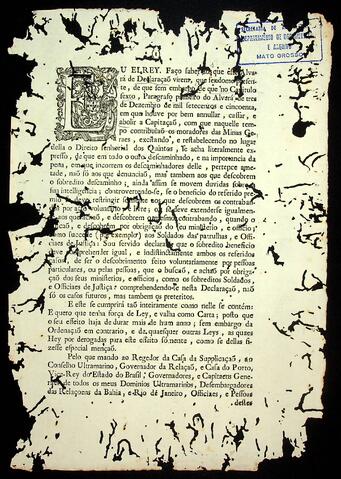 DEPARTAMENTO DE
E ARQUIVO
MATO GROSSO
EU ELREY. Faço saber que este Alva-
rá de Declaração virem, que sendome prese-
nte, de que sem embargo de que no Capitulo
sexto, Paragrafo primeiro do Alvará de tres
de Dezembro de mil setecentos e cincoenta,
em que houve por bem annullar, cassar, e
abolir a Capitação, com que naquelle tem-
po contribuaõ os moradores das Minas Ge-
raes, excitando, e restabelecendo no lugar
della o Direito senhorial dos Quintos, se acha literalmente ex-
presso, de que em todo o outro descaminhado, e na importancia da
pena, em que incorrem os descaminhadores delle, pertence ame-
tade, não só aos que denunciaõ, mas tambem aos que descobrem
o sobredito descaminho; ainda assim se movem duvidas sobre
intelligencia; controvertendo-se, se o beneficio do referido
restringir aos que descobrem os contraban-
por acto voluntario se deve extenderse igualmen-
te aos que descobrem contrabando, quando o
e descobrem por obrigação do seu ministerio, e officio;
como succede (por exemplo) aos Soldados das patrulhas, e Offi-
ciaes de Justiça: Sou servido declarar que o sobredito beneficio
comprehender igual, e indistinctamente ambos os referidos
casos, de ser o descobrimento feito voluntariamente por pessoas
particulares, ou pelas pessoas, que o buscaõ, e achaõ por obriga-
ção dos seus ministerios, e officios; como os sobreditos Soldados,
e Officiaes de Justiça: comprehendendo-se nesta Declaração, não
só os casos futuros, mas tambem os preteritos.
E este se cumprirá taõ inteiramente como nelle se contém:
E quero que tenha força de Ley, e valha como Carta; posto que
o seu effeito haja de durar mais de hum anno; sem embargo da
Ordenação em contrario, e de quaesquer outras Leys, as quaes
Hey por derogadas para este effeito sómente, como se dellas fi-
zesse especial menção.
Pelo que mando ao Regedor da Casa da Supplicação, ao
Conselho Ultramarino, Governador da Relação, e Casa do Porto,
Vice-Rey do Estado do Brasil, Governadores, e Capitaens Gene-
raes de todos os meus Dominios Ultramarinos, Desembargadores
das Relaçoens da Bahia, e Rio de Janeiro, Officiaes, e Pessoas
destes